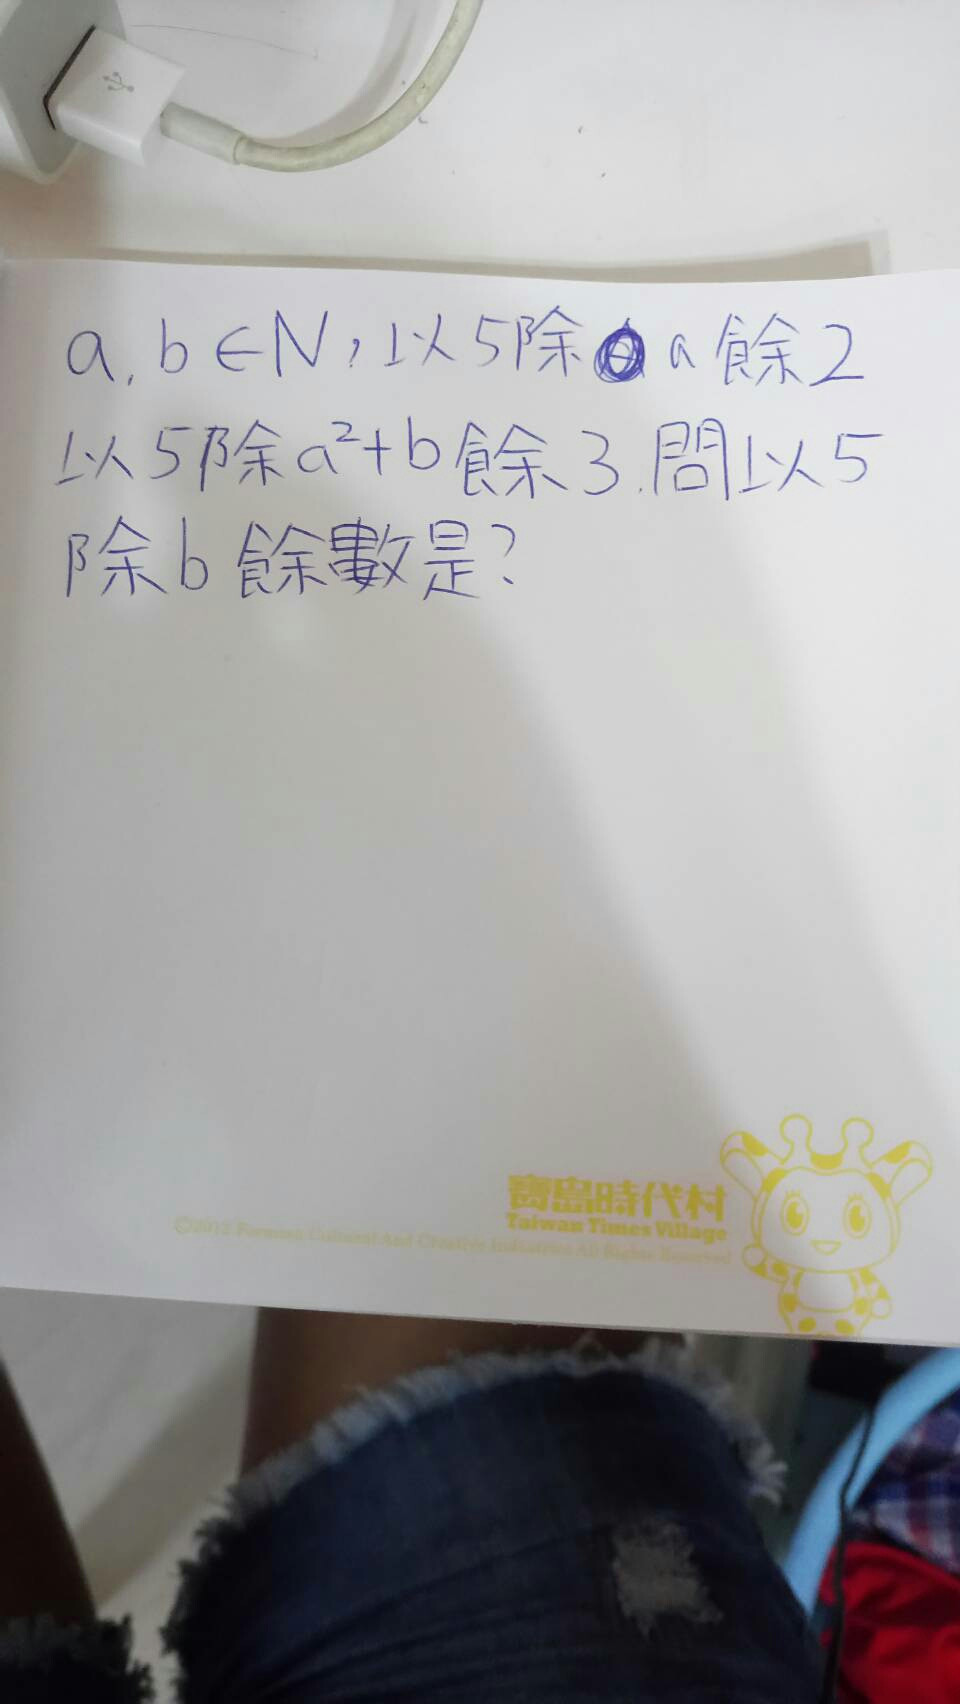 a, b ∈ N, 以5除 a 餘2
以5除a²+b餘3.問以5
除b餘數是?
寶島時代村
Taiwan Times Village
©2012 Formosa Cultural And Creative Industries All Rights Reserved